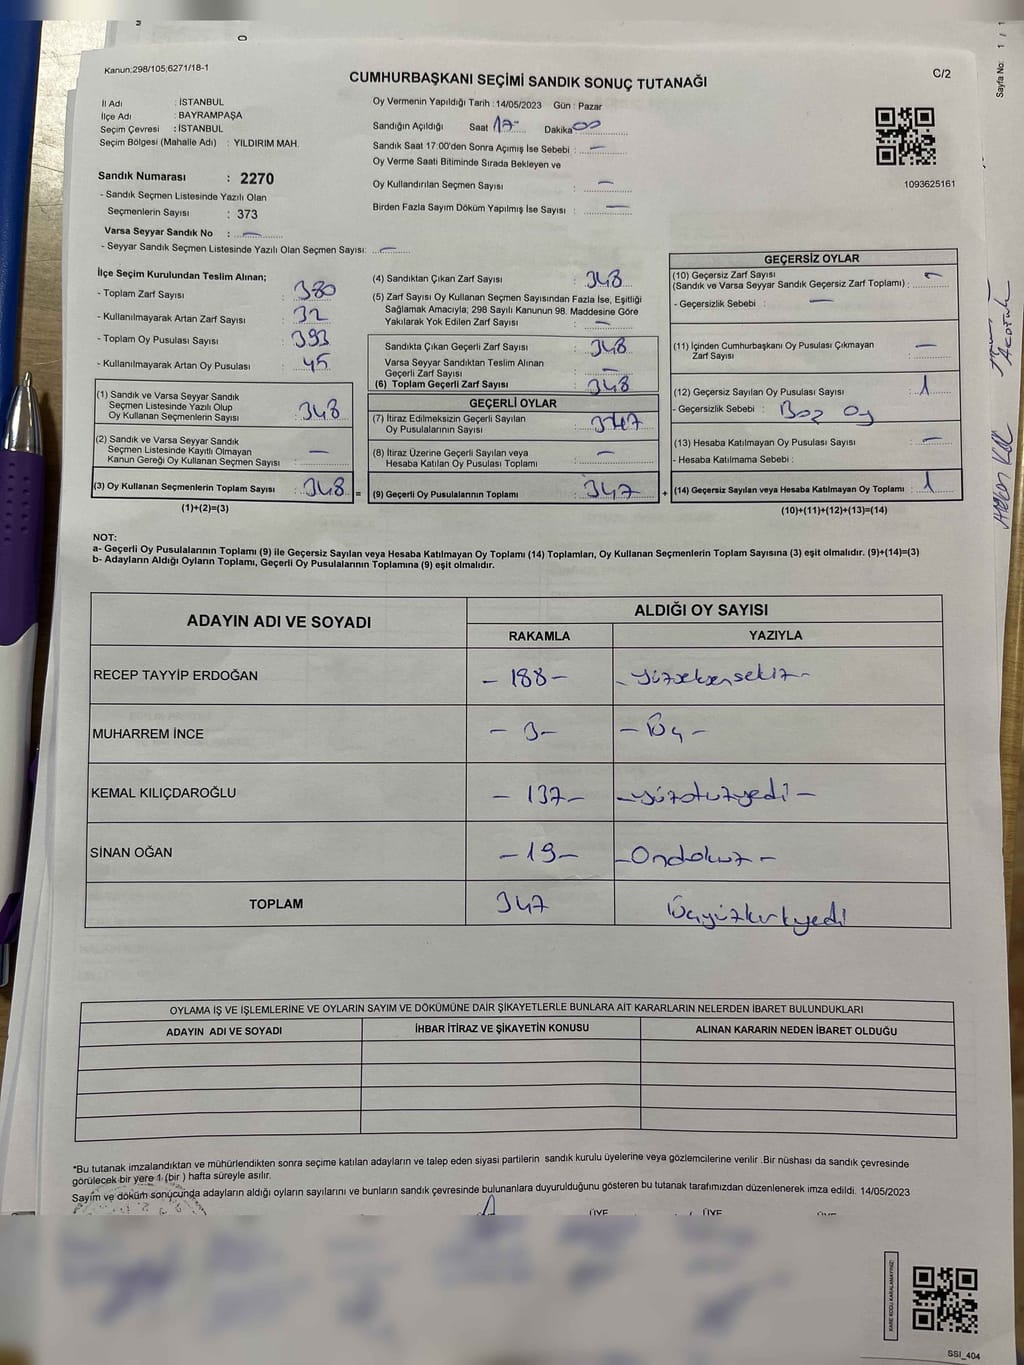 Kanun;298/105;6271/18-1
CUMHURBAŞKANI SEÇİMİ SANDIK SONUÇ TUTANAĞI
C/2
Sayfa No: 1 / 1
İl Adı : İSTANBUL
İlçe Adı : BAYRAMPAŞA
Seçim Çevresi : İSTANBUL
Seçim Bölgesi (Mahalle Adı) : YILDIRIM MAH.
Oy Vermenin Yapıldığı Tarih : 14/05/2023 Gün : Pazar
Sandığın Açıldığı Saat 17 Dakika 00
Sandık Saat 17:00'den Sonra Açımış İse Sebebi : —
Oy Verme Saati Bitiminde Sırada Bekleyen ve
Oy Kullandırılan Seçmen Sayısı : —
Birden Fazla Sayım Döküm Yapılmış İse Sayısı : —
1093625161
Sandık Numarası : 2270
- Sandık Seçmen Listesinde Yazılı Olan
Seçmenlerin Sayısı : 373
Varsa Seyyar Sandık No : —
- Seyyar Sandık Seçmen Listesinde Yazılı Olan Seçmen Sayısı: —
İlçe Seçim Kurulundan Teslim Alınan;
- Toplam Zarf Sayısı : 380
- Kullanılmayarak Artan Zarf Sayısı : 32
- Toplam Oy Pusulası Sayısı : 393
- Kullanılmayarak Artan Oy Pusulası : 45
(1) Sandık ve Varsa Seyyar Sandık
Seçmen Listesinde Yazılı Olup
Oy Kullanan Seçmenlerin Sayısı : 348
(2) Sandık ve Varsa Seyyar Sandık
Seçmen Listesinde Kayıtlı Olmayan
Kanun Gereği Oy Kullanan Seçmen Sayısı : —
(3) Oy Kullanan Seçmenlerin Toplam Sayısı : 348 =
(1)+(2)=(3)
(4) Sandıktan Çıkan Zarf Sayısı : 348
(5) Zarf Sayısı Oy Kullanan Seçmen Sayısından Fazla İse, Eşitliği
Sağlamak Amacıyla; 298 Sayılı Kanunun 98. Maddesine Göre
Yakılarak Yok Edilen Zarf Sayısı : —
Sandıkta Çıkan Geçerli Zarf Sayısı : 348
Varsa Seyyar Sandıktan Teslim Alınan
Geçerli Zarf Sayısı : —
(6) Toplam Geçerli Zarf Sayısı : 348
GEÇERLİ OYLAR
(7) İtiraz Edilmeksizin Geçerli Sayılan
Oy Pusulalarının Sayısı : 347
(8) İtiraz Üzerine Geçerli Sayılan veya
Hesaba Katılan Oy Pusulası Toplamı : —
(9) Geçerli Oy Pusulalarının Toplamı : 347 +
GEÇERSİZ OYLAR
(10) Geçersiz Zarf Sayısı
(Sandık ve Varsa Seyyar Sandık Geçersiz Zarf Toplamı) : —
- Geçersizlik Sebebi : —
(11) İçinden Cumhurbaşkanı Oy Pusulası Çıkmayan
Zarf Sayısı : —
(12) Geçersiz Sayılan Oy Pusulası Sayısı : 1
- Geçersizlik Sebebi : Boş Oy
(13) Hesaba Katılmayan Oy Pusulası Sayısı : —
- Hesaba Katılmama Sebebi :
(14) Geçersiz Sayılan veya Hesaba Katılmayan Oy Toplamı : 1
(10)+(11)+(12)+(13)=(14)
NOT:
a- Geçerli Oy Pusulalarının Toplamı (9) ile Geçersiz Sayılan veya Hesaba Katılmayan Oy Toplamı (14) Toplamları, Oy Kullanan Seçmenlerin Toplam Sayısına (3) eşit olmalıdır. (9)+(14)=(3)
b- Adayların Aldığı Oyların Toplamı, Geçerli Oy Pusulalarının Toplamına (9) eşit olmalıdır.
ADAYIN ADI VE SOYADI ALDIĞI OY SAYISI
RAKAMLA YAZIYLA
RECEP TAYYİP ERDOĞAN – 188 – – yüzseksensekiz –
MUHARREM İNCE – 3 – – Üç –
KEMAL KILIÇDAROĞLU – 137 – – yüzotuzyedi –
SİNAN OĞAN – 19 – – Ondokuz –
TOPLAM 347 Üçyüzkırkyedi
OYLAMA İŞ VE İŞLEMLERİNE VE OYLARIN SAYIM VE DÖKÜMÜNE DAİR ŞİKAYETLERLE BUNLARA AİT KARARLARIN NELERDEN İBARET BULUNDUKLARI
ADAYIN ADI VE SOYADI İHBAR İTİRAZ VE ŞİKAYETİN KONUSU ALINAN KARARIN NEDEN İBARET OLDUĞU
*Bu tutanak imzalandıktan ve mühürlendikten sonra seçime katılan adayların ve talep eden siyasi partilerin sandık kurulu üyelerine veya gözlemcilerine verilir .Bir nüshası da sandık çevresinde
görülecek bir yere 1 (bir ) hafta süreyle asılır.
Sayım ve döküm sonucunda adayların aldığı oyların sayılarını ve bunların sandık çevresinde bulunanlara duyurulduğunu gösteren bu tutanak tarafımızdan düzenlenerek imza edildi. 14/05/2023
ÜYE ÜYE
KARE KODU KARALAMAYINIZ!
SSI_404